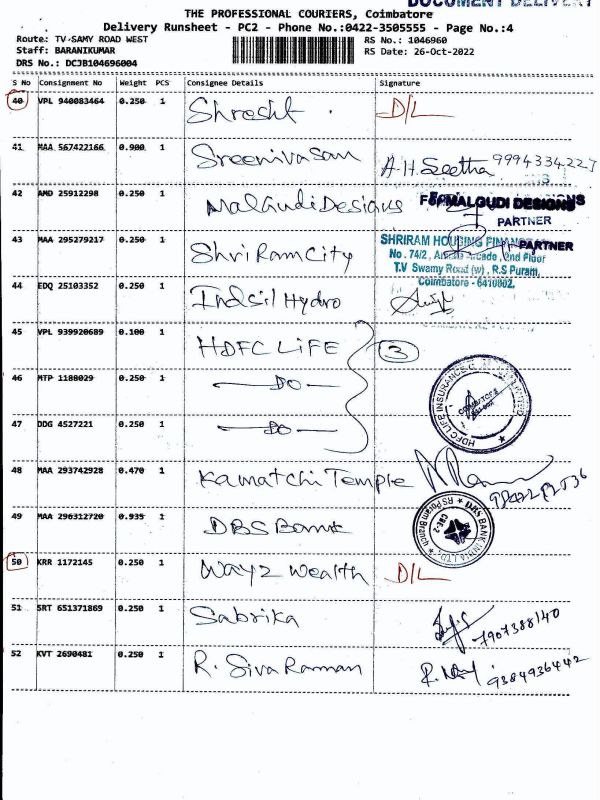 DOCUMENT DELIVERY
THE PROFESSIONAL COURIERS, Coimbatore
Delivery Runsheet - PC2 - Phone No.:0422-3505555 - Page No.:4
Route: TV-SAMY ROAD WEST
RS No.: 1046960
Staff: BARANIKUMAR
RS Date: 26-Oct-2022
DRS No.: DCJB104696004
S No Consignment No Weight PCS Consignee Details Signature
40 VPL 940083464 0.250 1 Shresht D/L
41 MAA 567422166 0.900 1 Sreenivasan A.H.Seetha 9994334227
42 AMD 25912298 0.250 1 Malgudi Designs
For MALGUDI DESIGNS
PARTNER
43 MAA 295279217 0.250 1 Shri Ram City
PARTNER
SHRIRAM HOUSING FINANCE
No. 74/2, Arcade, 2nd Floor
T.V Swamy Road (w), R.S Puram,
Coimbatore - 6410002.
44 EDQ 25103352 0.250 1 Indsil Hydro
45 VPL 939920689 0.100 1 HDFC LIFE 3
46 MTP 1188029 0.250 1 — DO —
47 DDG 4527221 0.250 1 — DO —
HDFC LIFE INSURANCE LIMITED
48 MAA 293742928 0.470 1 Kamatchi Temple
49 MAA 296312720 0.935 1 DBS Bank
DBS BANK INDIA LTD. RS Puram Branch CBE-2
50 KRR 1172145 0.250 1 Wayz Wealth D/L
51 SRT 651371869 0.250 1 Sabrika 7907388140
52 KVT 2690481 0.250 1 R. Siva Raman 9384936442